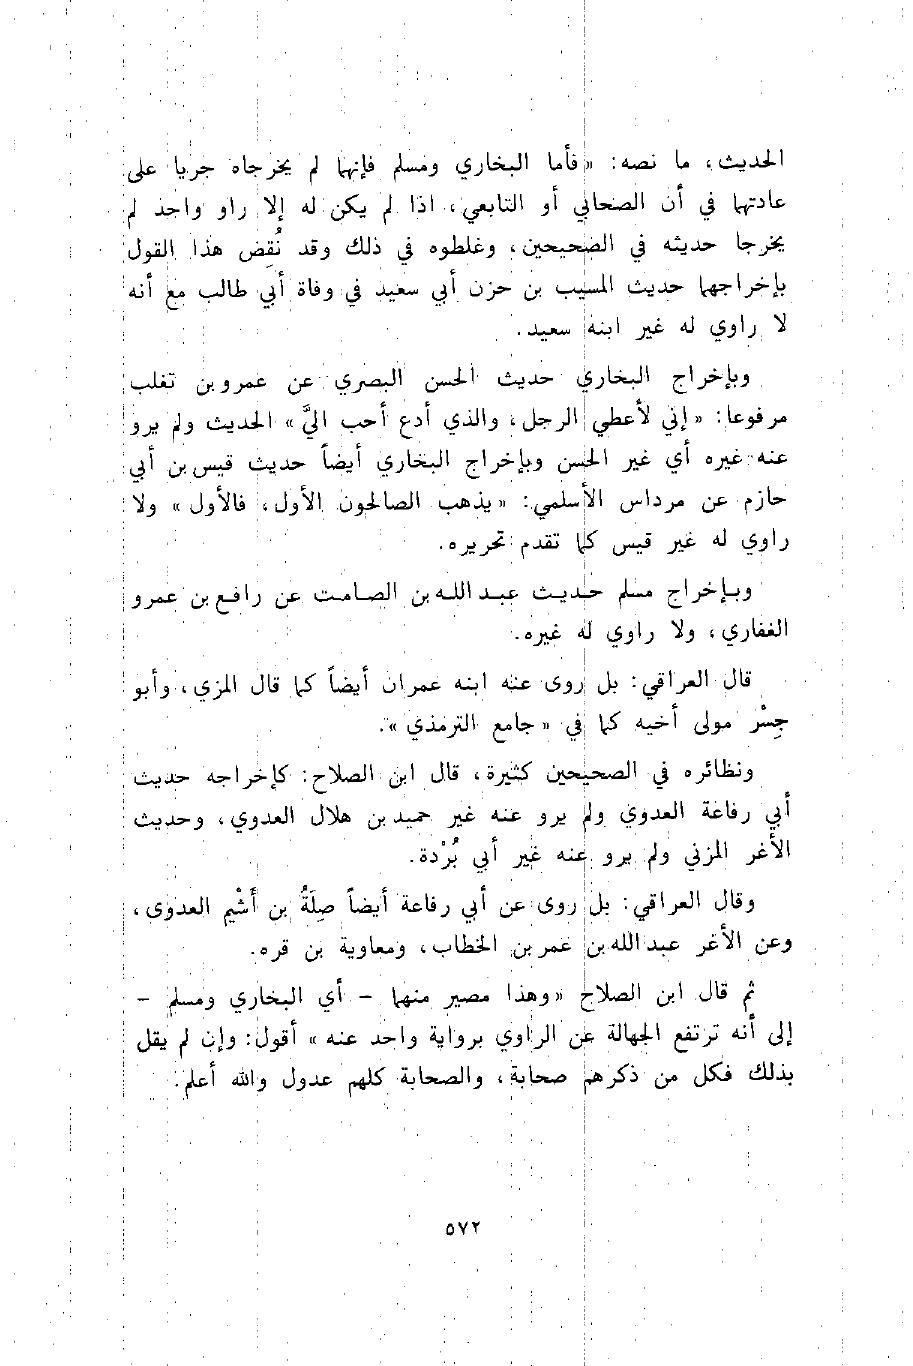 الحديث، ما نصه: «فأما البخاري ومسلم فإنهما لم يخرجاه جريا على
عادتهما في أن الصحابي أو التابعي، اذا لم يكن له إلا راو واحد لم
يخرجا حديثه في الصحيحين، وغلطوه في ذلك وقد نُقِض هذا القول
بإخراجهما حديث المسيب بن حزن أبي سعيد في وفاة أبي طالب مع أنه
لا راوي له غير ابنه سعيد.
وبإخراج البخاري حديث الحسن البصري عن عمرو بن تغلب
مرفوعا: «إني لأعطي الرجل، والذي أدع أحب اليَّ» الحديث ولم يرو
عنه غيره أي غير الحسن وبإخراج البخاري أيضاً حديث قيس بن أبي
حازم عن مرداس الأسلمي: «يذهب الصالحون الأول، فالأول» ولا
راوي له غير قيس كما تقدم تحريره.
وبإخراج مسلم حديث عبد الله بن الصامت عن رافع بن عمرو
الغفاري، ولا راوي له غيره.
قال العراقي: بل روى عنه ابنه عمران أيضاً كما قال المزي، وأبو
جِسْر مولى أخيه كما في «جامع الترمذي».
ونظائره في الصحيحين كثيرة، قال ابن الصلاح: كإخراجه حديث
أبي رفاعة العدوي ولم يرو عنه غير حميد بن هلال العدوي، وحديث
الأغر المزني ولم يرو عنه غير أبي بُرْدة.
وقال العراقي: بل روى عن أبي رفاعة أيضاً صِلَةُ بن أشْيم العدوى،
وعن الأغر عبد الله بن عمر بن الخطاب، ومعاوية بن قره.
ثم قال ابن الصلاح «وهذا مصير منهما - أي البخاري ومسلم -
إلى أنه ترتفع الجهالة عن الراوي برواية واحد عنه» أقول: وإن لم يقل
بذلك فكل من ذكرهم صحابة، والصحابة كلهم عدول والله أعلم.
٥٧٢